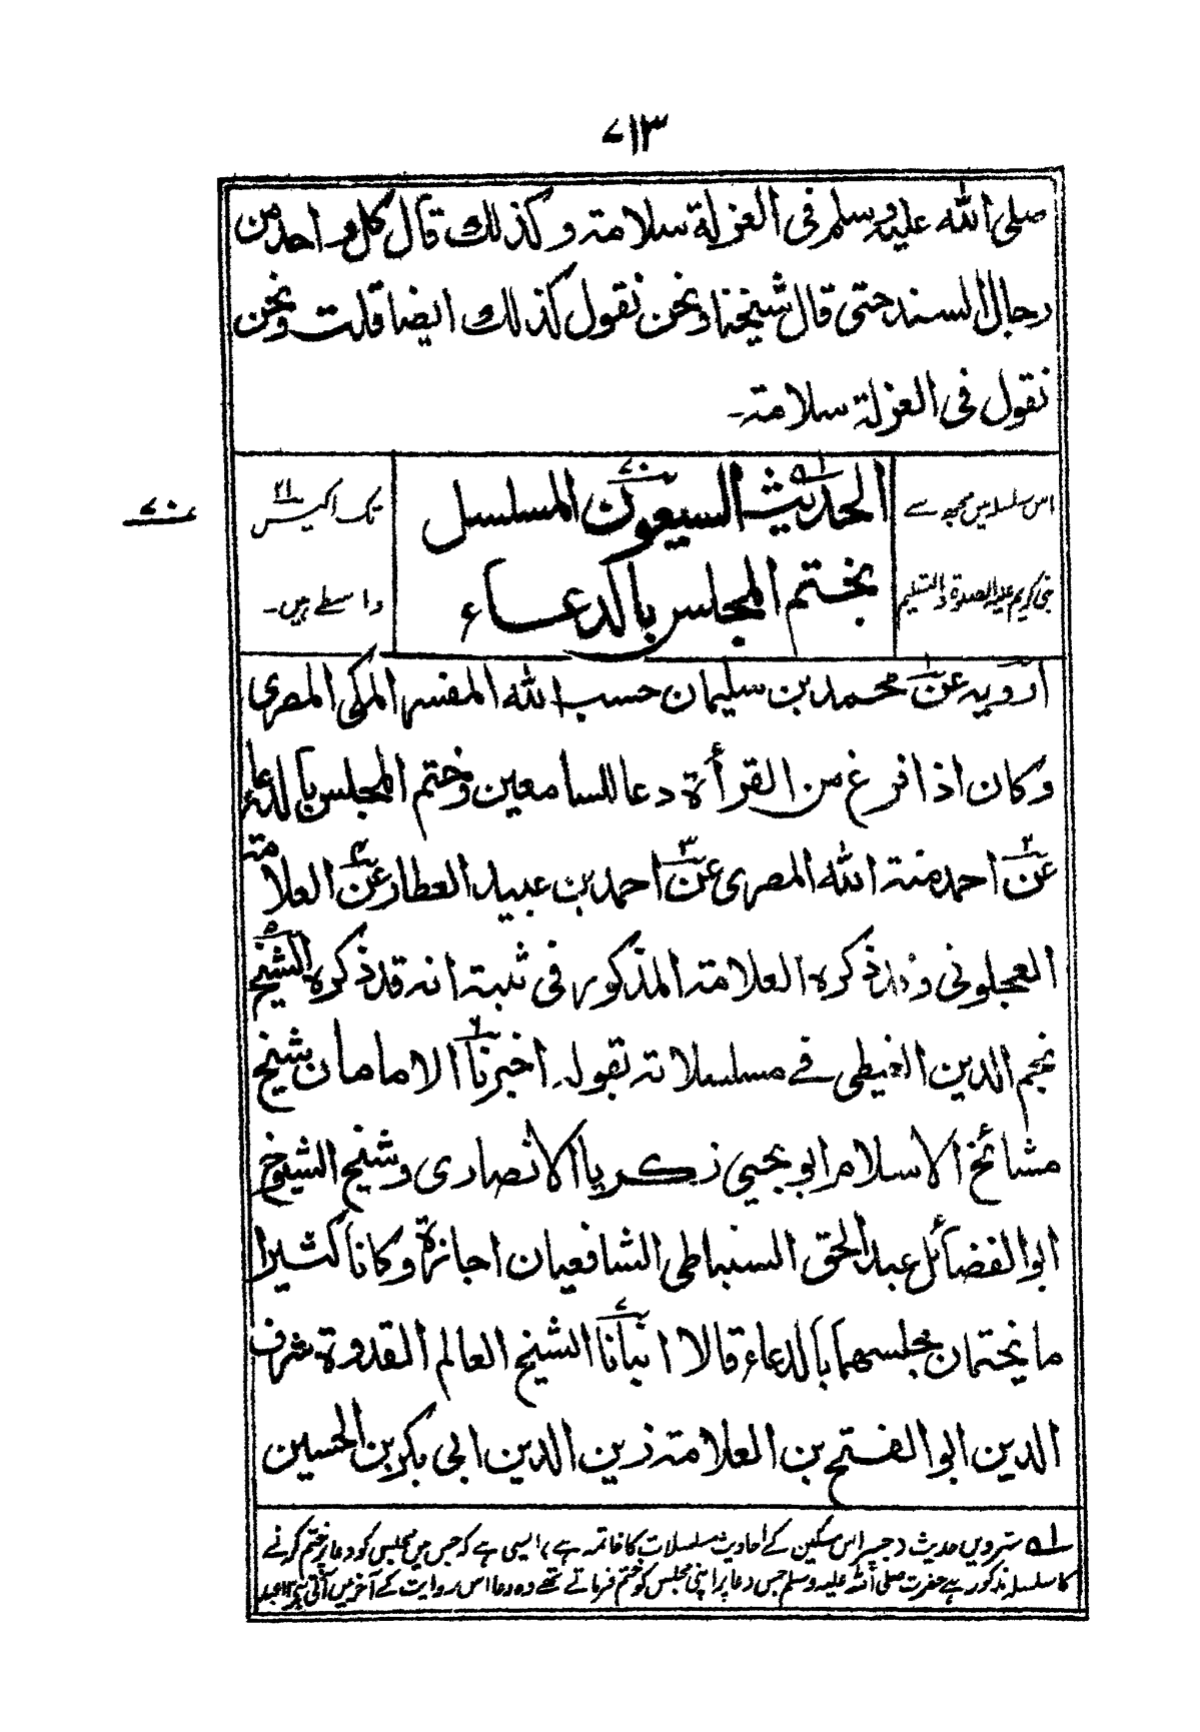 ۷۱۳
صلى الله عليه وسلم فى العزلة سلامة وكذلك قال كل واحد من
رجال السند حتى قال شيخنا ونحن نقول كذلك ايضا قلت ونحن
نقول فى العزلة سلامة۔
اس سلسلہ میں مجھ سے
نبی کریم علیہ الصلوۃ والتسلیم
الحديث السبعون المسلسل
بختم المجلس بالدعاء
تک اکیس ۲۱
واسطے ہیں۔
۷۰
ارويه عن محمد بن سليمان حسب الله المفسر المكى المصرى
وكان اذا فرغ من القرأة دعا للسامعين وختم المجلس بالدعاء
عن احمد منة الله المصرى عن احمد بن عبيد العطار عن العلامة
العجلونى وقد ذكره العلامة المذكور فى ثبته انه قد ذكره الشيخ
نجم الدين الغيطى فے مسلسلاته بقوله اخبرنا الامامان شيخ
مشائخ الاسلام ابو يحيى زكريا الانصارى وشيخ الشيوخ
ابو الفضائل عبد الحق السنباطى الشافعيان اجازة وكانا كثيرا
ما يختمان مجلسهما بالدعاء قالا انبأنا الشيخ العالم القدوة شرف
الدين ابو الفتح بن العلامة زين الدين ابى بكر بن الحسين
۱ه سترویں حدیث جسپر اس مسکین کے احادیث مسلسلات کا خاتمہ ہے، ایسی ہے کہ جس میں مجلس کو دعا پر ختم کرنے
کا سلسلہ مذکور ہے حضرت صلی اللہ علیہ وسلم جس دعا پر اپنی مجلس کو ختم فرماتے تھے وہ دعا اس روایت کے آخر میں آتی ہے ۱۲